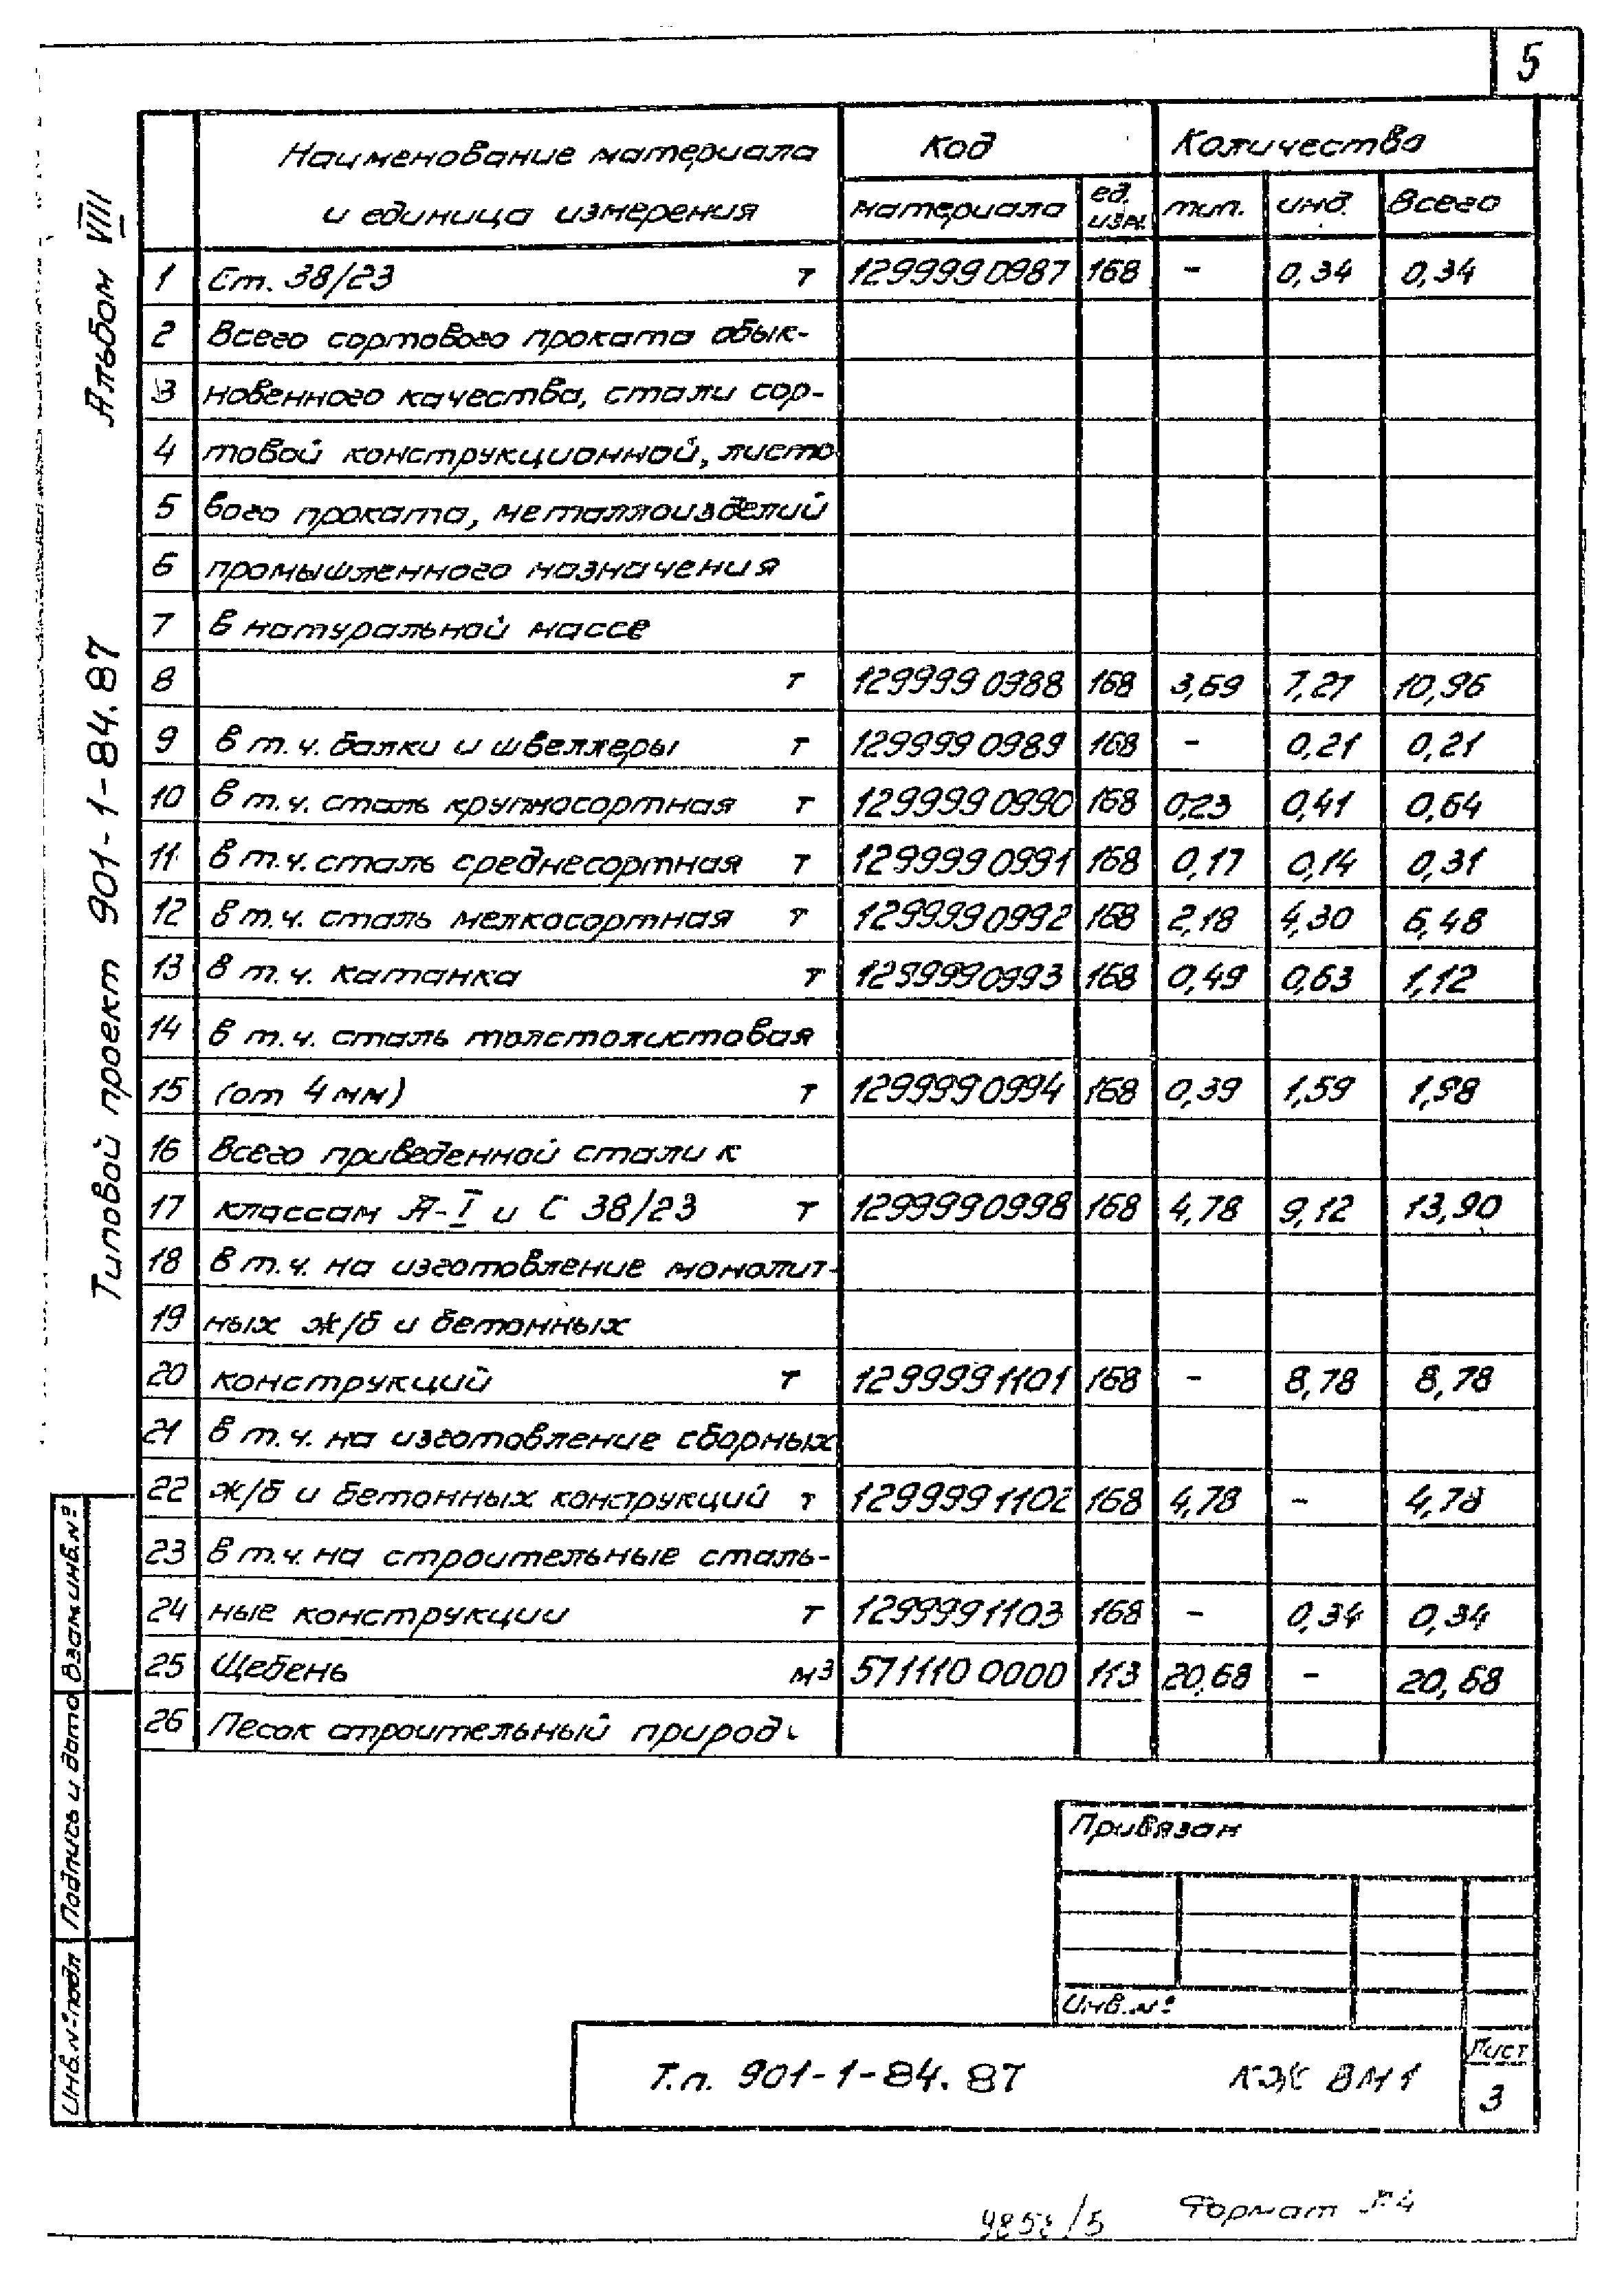 5
Альбом VIII
Типовой проект 901-1-84.87
Наименование материала и единица измерения Код Количество
материала ед. изм. тип. инд. Всего
1 Ст. 38/23 т 1299990987 168 - 0,34 0,34
2 Всего сортового проката обык-
3 новенного качества, стали сор-
4 товой конструкционной, листо
5 вого проката, металлоизделий
6 промышленного назначения
7 в натуральной массе
8 т 1299990988 168 3,69 7,27 10,96
9 в т.ч. балки и швеллеры т 1299990989 168 - 0,21 0,21
10 в т.ч. сталь крупносортная т 1299990990 168 0,23 0,41 0,64
11 в т.ч. сталь среднесортная т 1299990991 168 0,17 0,14 0,31
12 в т.ч. сталь мелкосортная т 1299990992 168 2,18 4,30 6,48
13 в т.ч. катанка т 1299990993 168 0,49 0,63 1,12
14 в т.ч. сталь толстолистовая
15 (от 4 мм) т 1299990994 168 0,39 1,59 1,98
16 Всего приведенной стали к
17 классам А-I и С 38/23 т 1299990998 168 4,78 9,12 13,90
18 в т.ч. на изготовление монолит-
19 ных ж/б и бетонных
20 конструкций т 1299991101 168 - 8,78 8,78
21 в т.ч. на изготовление сборных
22 ж/б и бетонных конструкций т 1299991102 168 4,78 - 4,78
23 в т.ч. на строительные сталь-
24 ные конструкции т 1299991103 168 - 0,34 0,34
25 Щебень м3 5711100000 113 20,68 - 20,68
26 Песок строительный природ
Взам инв. №
Подпись и дата
Инв. № подл
Привязан
Инв. №
Т.п. 901-1-84.87 КЖ ВМ1
Лист
3
Формат